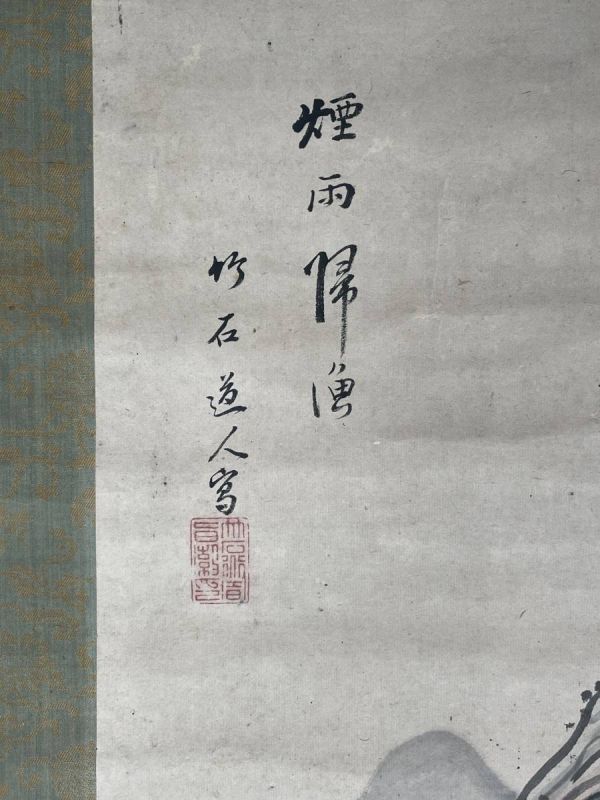 煙雨歸漁
竹石道人寫